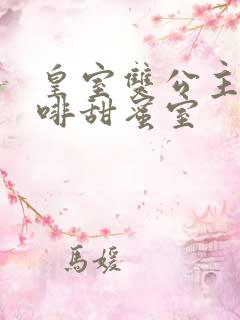 皇室雙公主
啡甜蜜室
馬媛